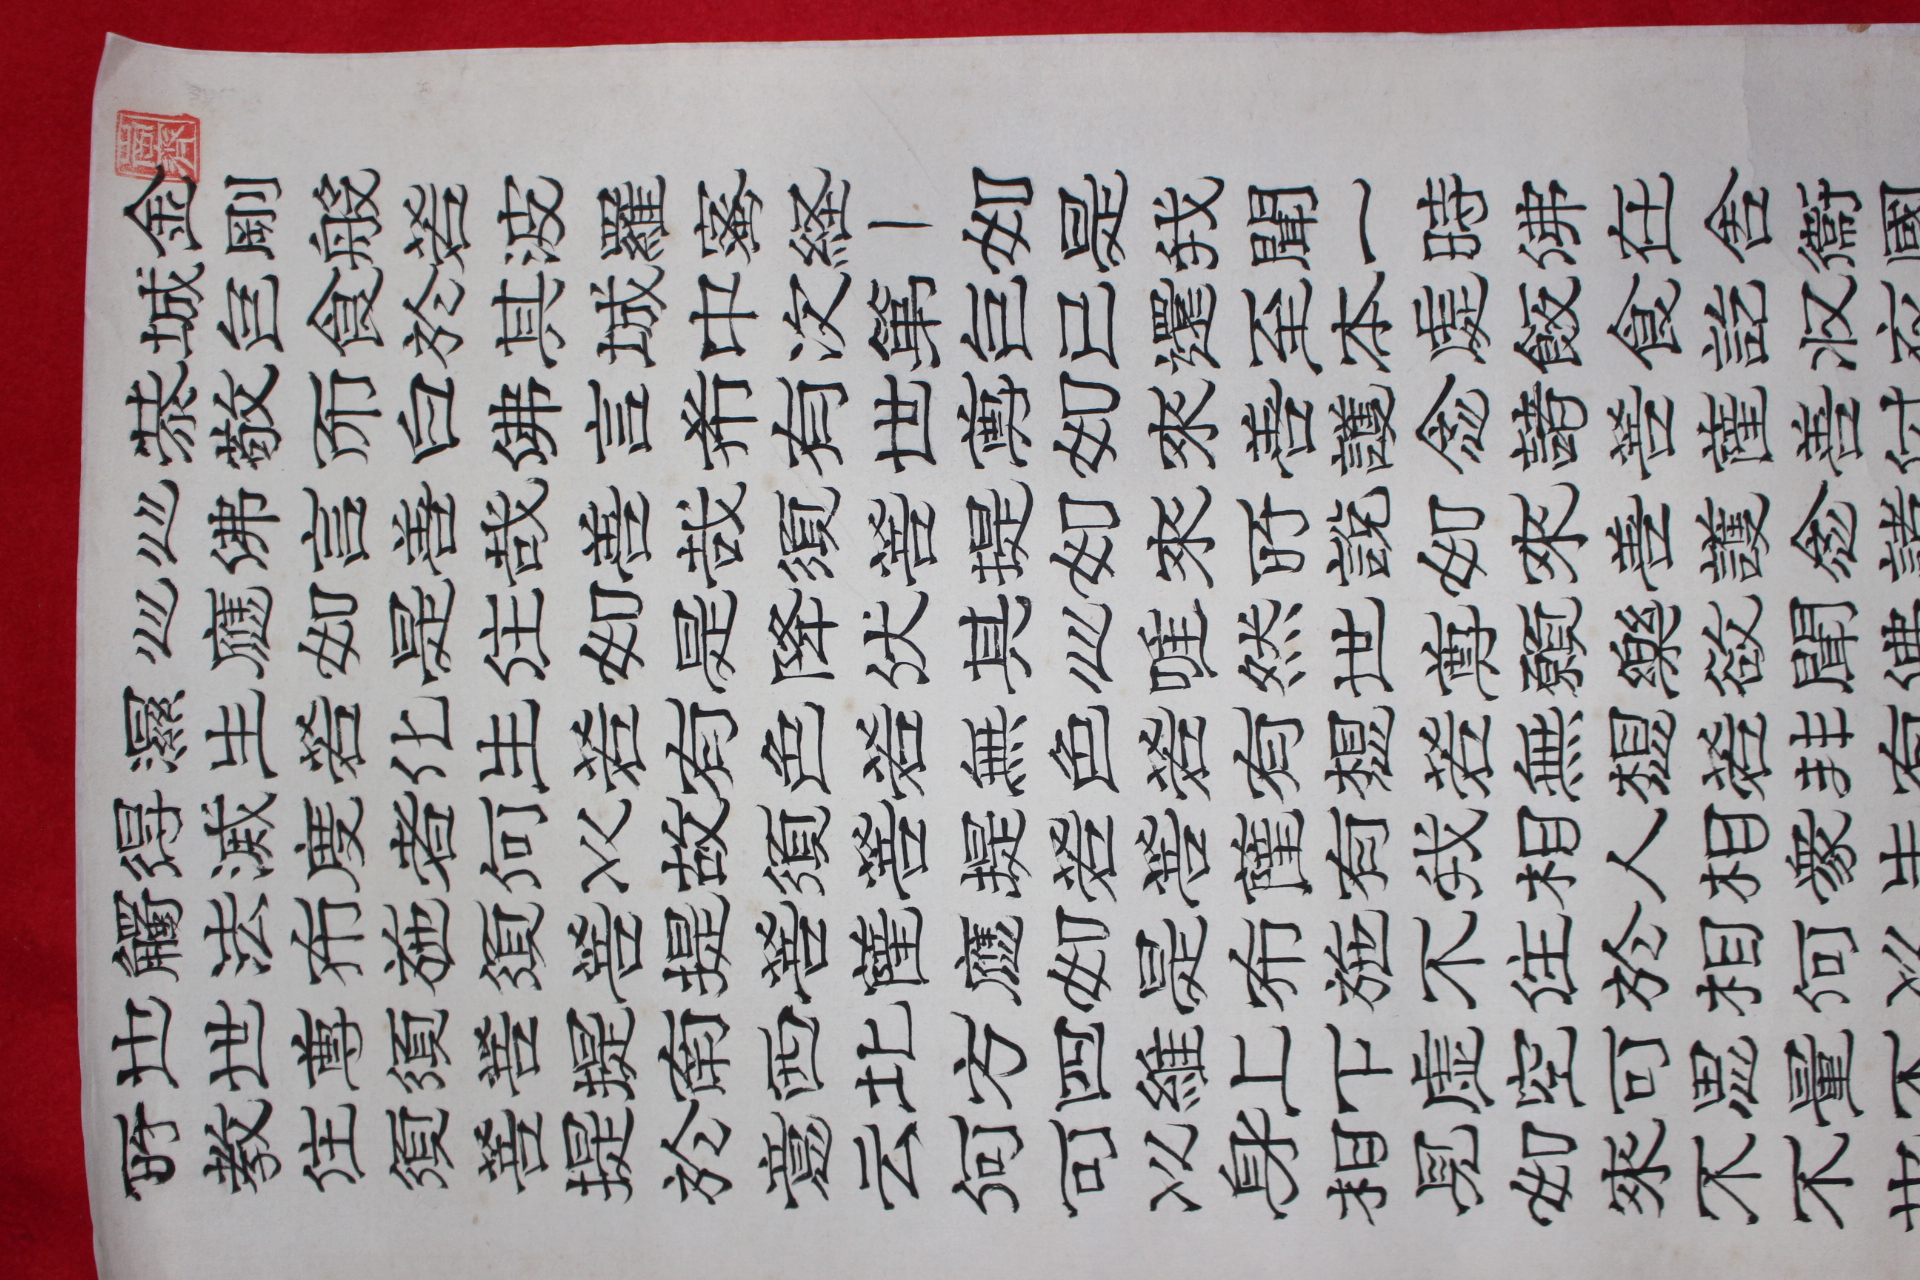 金剛般若波羅蜜經一如是我聞一時佛在舍衛國
城乞食於其城中次第乞已還至本處飯食訖收衣
恭敬而白佛言希有世尊如來善護念諸菩薩善付
心佛言善哉善哉須菩提如來所說如來善護念諸
心應如是住如是降伏其心唯然世尊願樂欲聞佛
濕生若化生若有色若無色若有想若無想若非有
得滅度者何以故須菩提若菩薩有我相人相眾生
觸法布施須菩提菩薩應如是布施不住於相何以
也世尊須菩提南西北方四維上下虛空可思量不
所教住須菩提於意云何可以身相見如來不不世